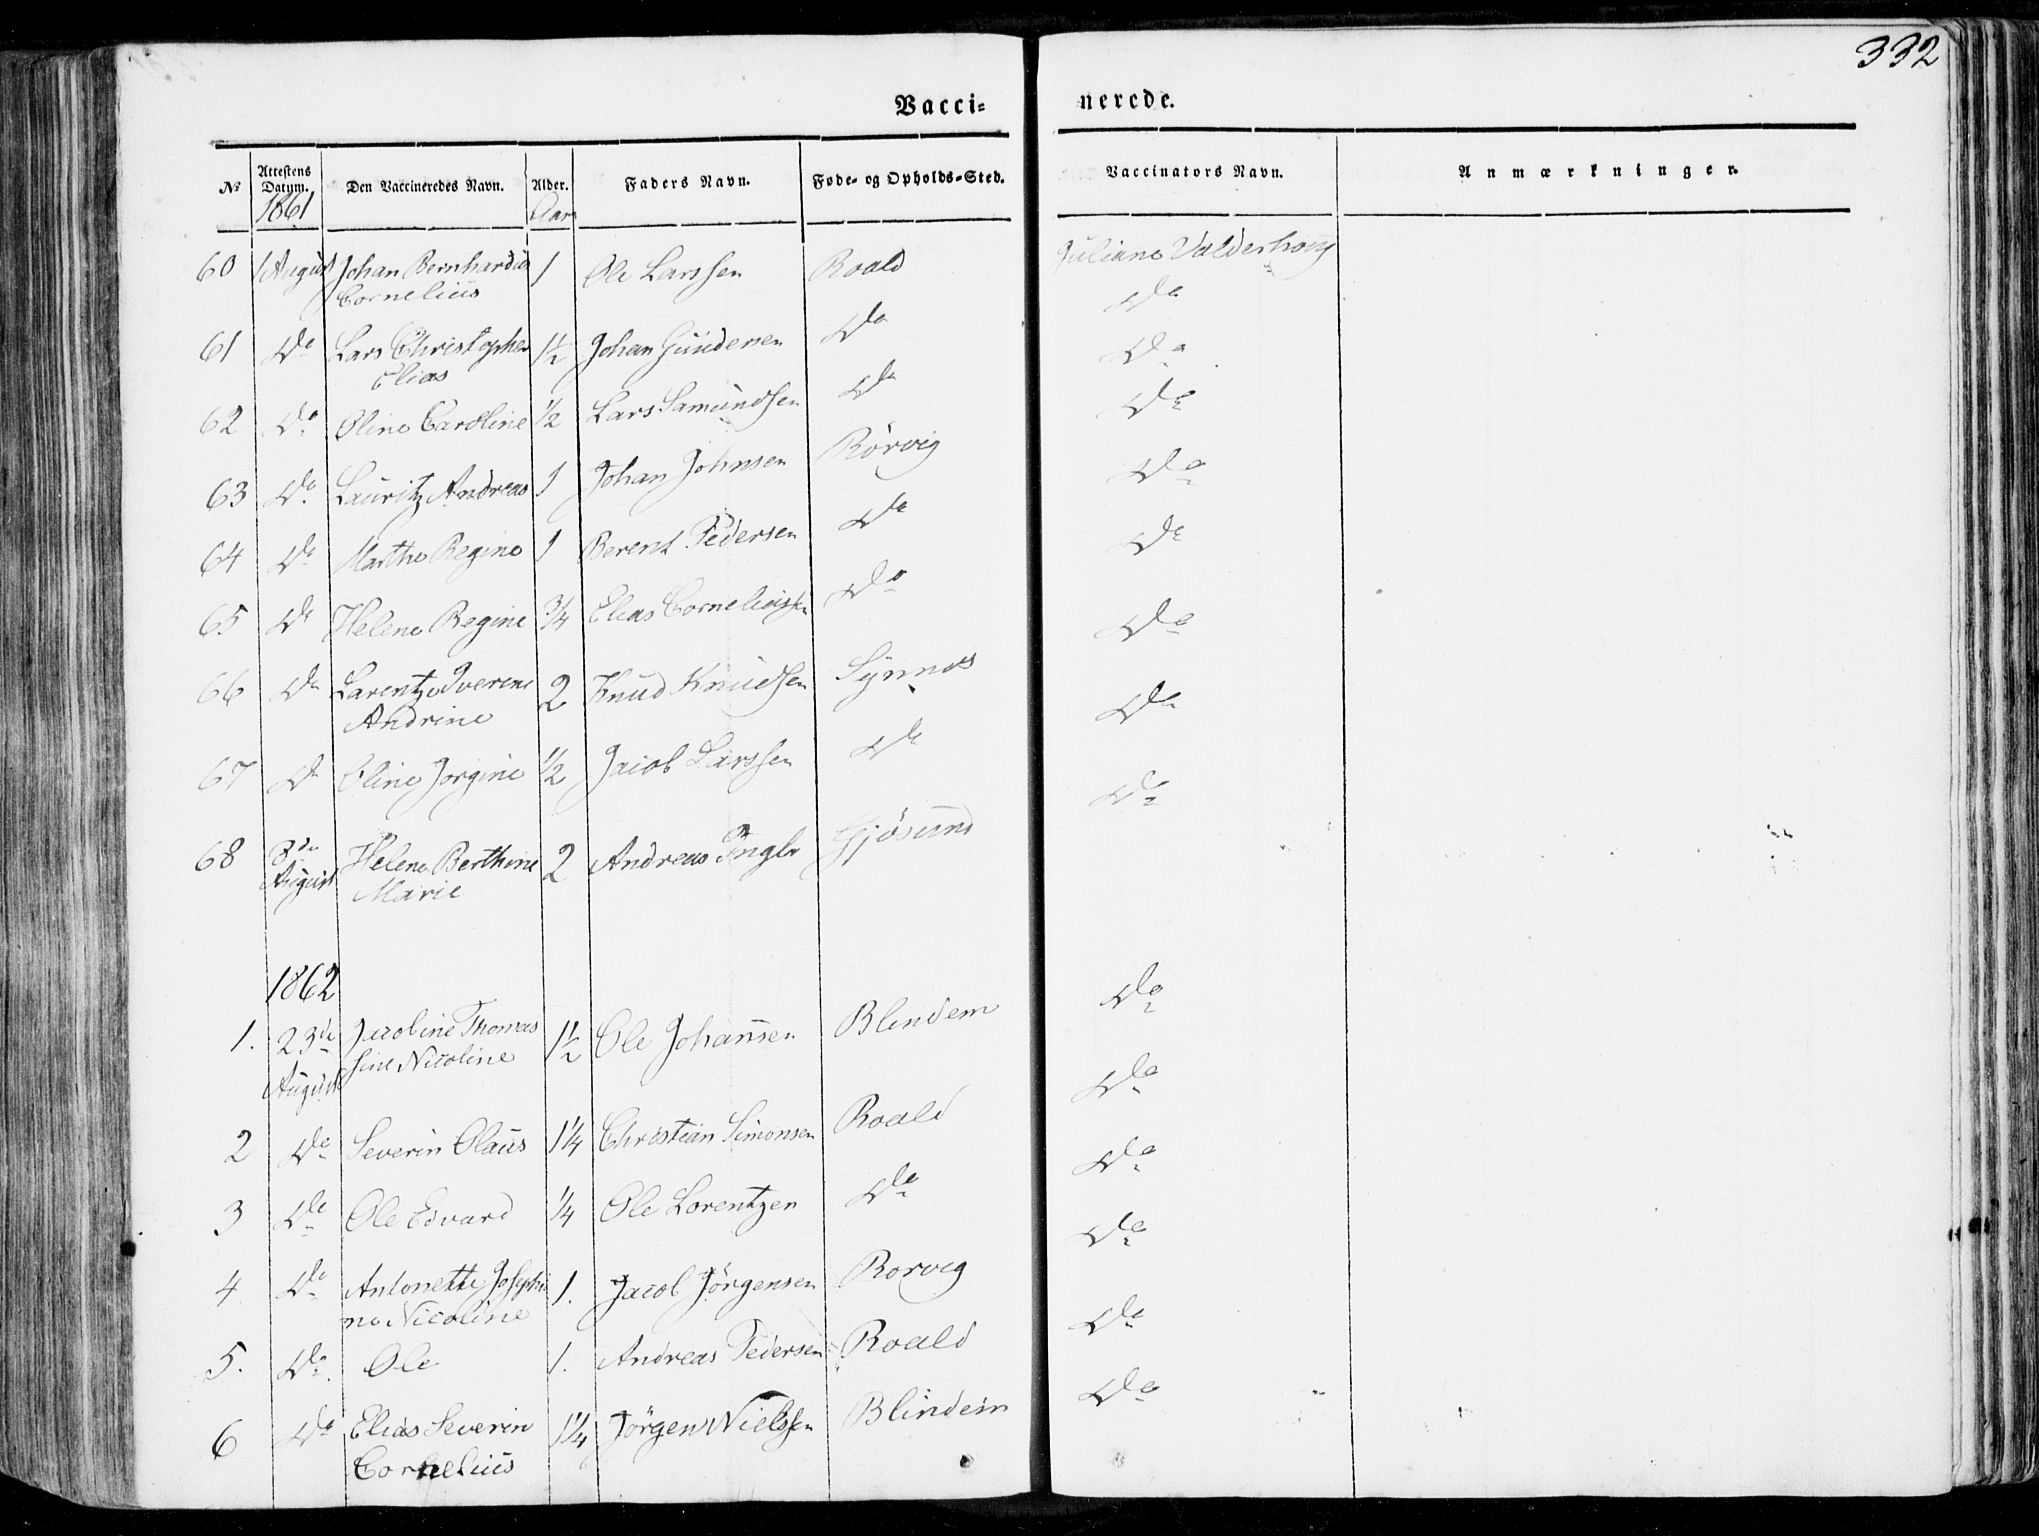 332
Vacci- nerede.
No Attestens Datum. Den Vaccineredes Navn. Alder. Faders Navn. Føde- og Opholds-Sted. Vaccinators Navn. Anmærkninger.
1861 Aar
60 1 August Johan Bernhardus 1 Ole Larssen Roald Juliane Valderhoug
Cornelius Do
61 Do Lars Christopher 1½ Johan Gundersen Do Do
Elias
62 Do Oline Caroline ½ Lars Samundsen Do Do
63 Do Lauritz Andreas 1 Johan Johnsen Rörvig Do
64 Do Marthe Regine 1 Berent Pedersen Do Do
65 Do Helene Regine ¾ Elias Corneliussen Do Do
66 Do Larentze Iverine 2 Knud Knudsen Synnes Do
Andrine
67 Do Eline Jorgine ½ Jacob Larssen Do Do
68 8de Helene Berthine 2 Andreas Pngbr Gjösund
August Marie
1862
1. 23de Jacobine Thomas 1½ Ole Johansen Blindem Do
August sine Nicoline
2 Do Severin Olaus 1¼ Christian Simonsen Roald Do
3 Do Ole Edvard ¼ Ole Lorentzen Do Do
4 Do Antonette Josephi 1. Jacob Jörgensen Rorvig Do
ne Nicoline
5. Do Ole 1. Andreas Pedersen Roald Do
6 Do Elias Severin 1¼ Jörgen Nielssen Blindem Do
Cornelius